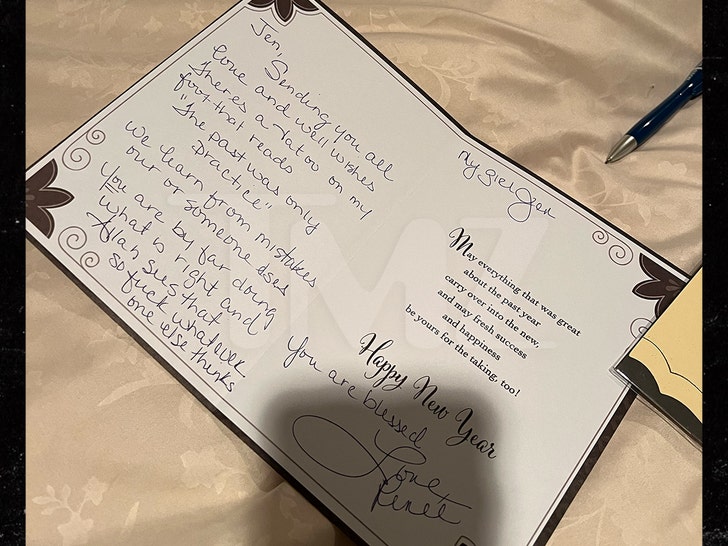 Jen,
Sending you all
love and well wishes
theres a tatoo on my
foot that reads
"The past was only
practice"
We learn from mistakes
our or someone elses
You are by far doing
what is right and
Allah sees that
so fuck whatever
one else thinks
My girl Jen
May everything that was great
about the past year
carry over into the new,
and may fresh success
and happiness
be yours for the taking, too!
Happy New Year
You are blessed
Love,
Renee
TMZ